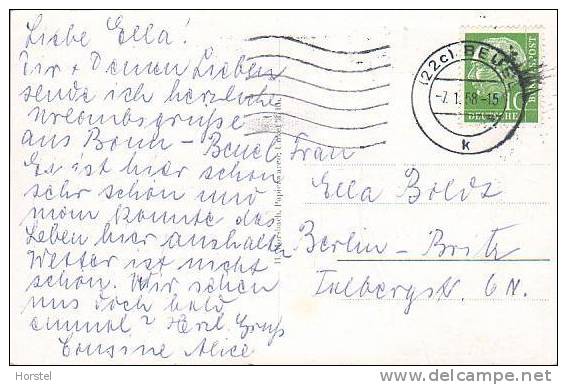 Liebe Ella!
Dir + Deinen Lieben
sende ich herzliche
Urlaubsgrüße
aus Bonn - Beuel
Es ist hier schon
sehr schön und
man könnte das
Leben hier aushalten
Wetter ist nicht
schön. Wir sehen
uns doch bald
einmal? Herzl. Gruß
Cousine Alice
(22c) BEUEL
-7.1.68-15
k
10
DEUTSCHE
BUNDESPOST
Frau
Ella Boldt
Berlin - Britz
6 N.
Horstel
www.delcampe.net